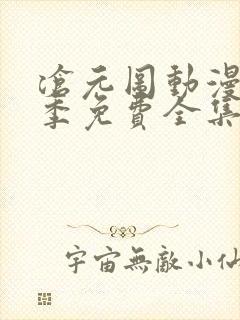 滄元圖動漫
季免費全集
宇宙無敵小仙